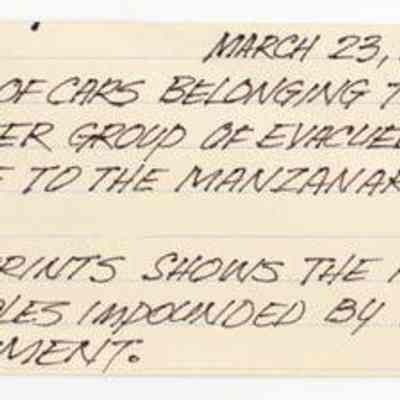 MARCH 23,
OF CARS BELONGING T
ER GROUP OF EVACUE
E TO THE MANZANAR
RINTS SHOWS THE
LES IMPOUNDED BY
MENT.